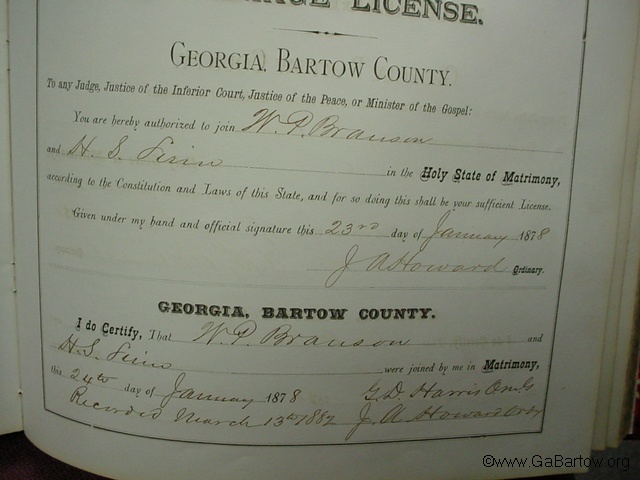 LICENSE.
GEORGIA, BARTOW COUNTY.
To any Judge, Justice of the Inferior Court, Justice of the Peace, or Minister of the Gospel:
You are hereby authorized to join W. P. Branson
and H. S. in the Holy State of Matrimony,
according to the Constitution and Laws of this State, and for so doing this shall be your sufficient License.
Given under my hand and official signature this 23rd day of January 1878
J A Howard Ordinary.
GEORGIA, BARTOW COUNTY.
I do Certify, That W. P. Branson and
H. S. were joined by me in Matrimony,
this 24th day of January 1878 G. D. Harris
Recorded March 13th 1882 J. A. Howard
©www.GaBartow.org